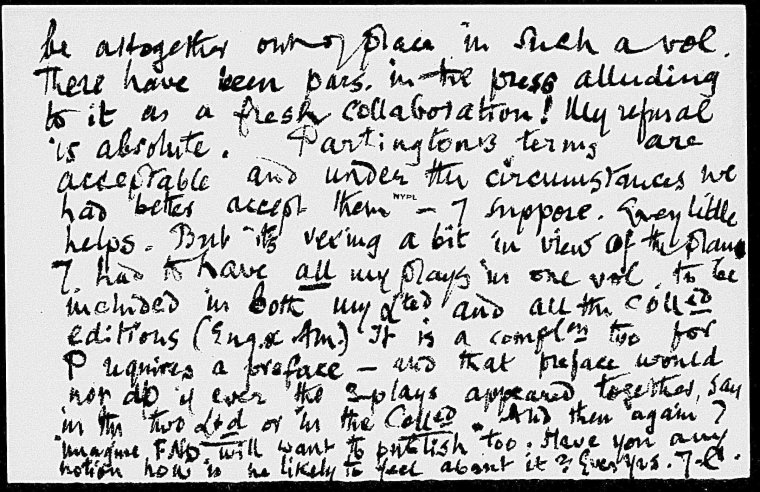 be altogether out of place in such a vol.
There have been pars. in the press alluding
to it as a fresh collaboration! My refusal
is absolute. Partington's terms are
acceptable and under the circumstances we
had better accept them — I suppose. Every little
NYPL
helps. But it's vexing a bit in view of the plans
I had to have all my plays in one vol. to be
included in both my Lted and all the Colled
editions (Eng. & Am.) It is a complon too for
P requires a preface — and that preface would
not do if ever the 3 plays appeared together, say
in the two Ltd or in the Colled. And then again I
imagine F.N.D. will want to publish too. Have you any
notion how is he likely to feel about it? Ever yrs. J.C.